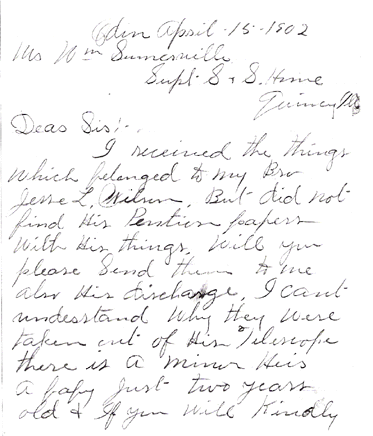 Edin April-15-1902
Mr Wm Sumerville
Supt S & S. Home
Quincy
Dear Sir:-
I received the things
which belonged to my Bro
Jesse L. Wilson, But did not
find His Pention papers
With His things, Will you
please Send them to me
also His discharge, I cant
understand Why they Were
taken out of His Telescope
there is a minor Heir
A baby Just two years
old & If you Will Kindly